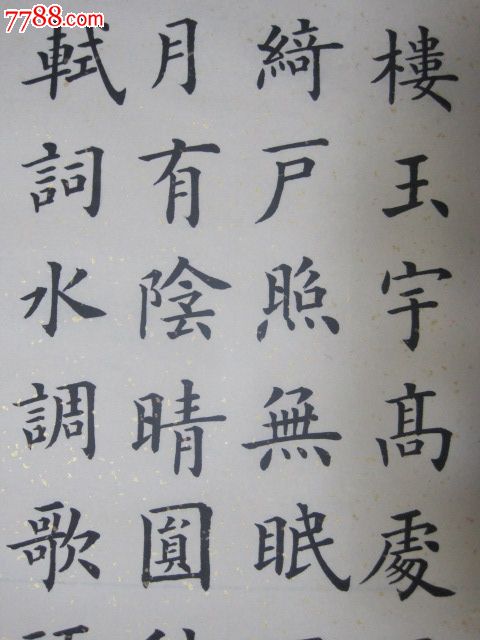 7788.com
樓玉宇髙處
綺戸照無眠
月有陰晴圓
軾詞水調歌